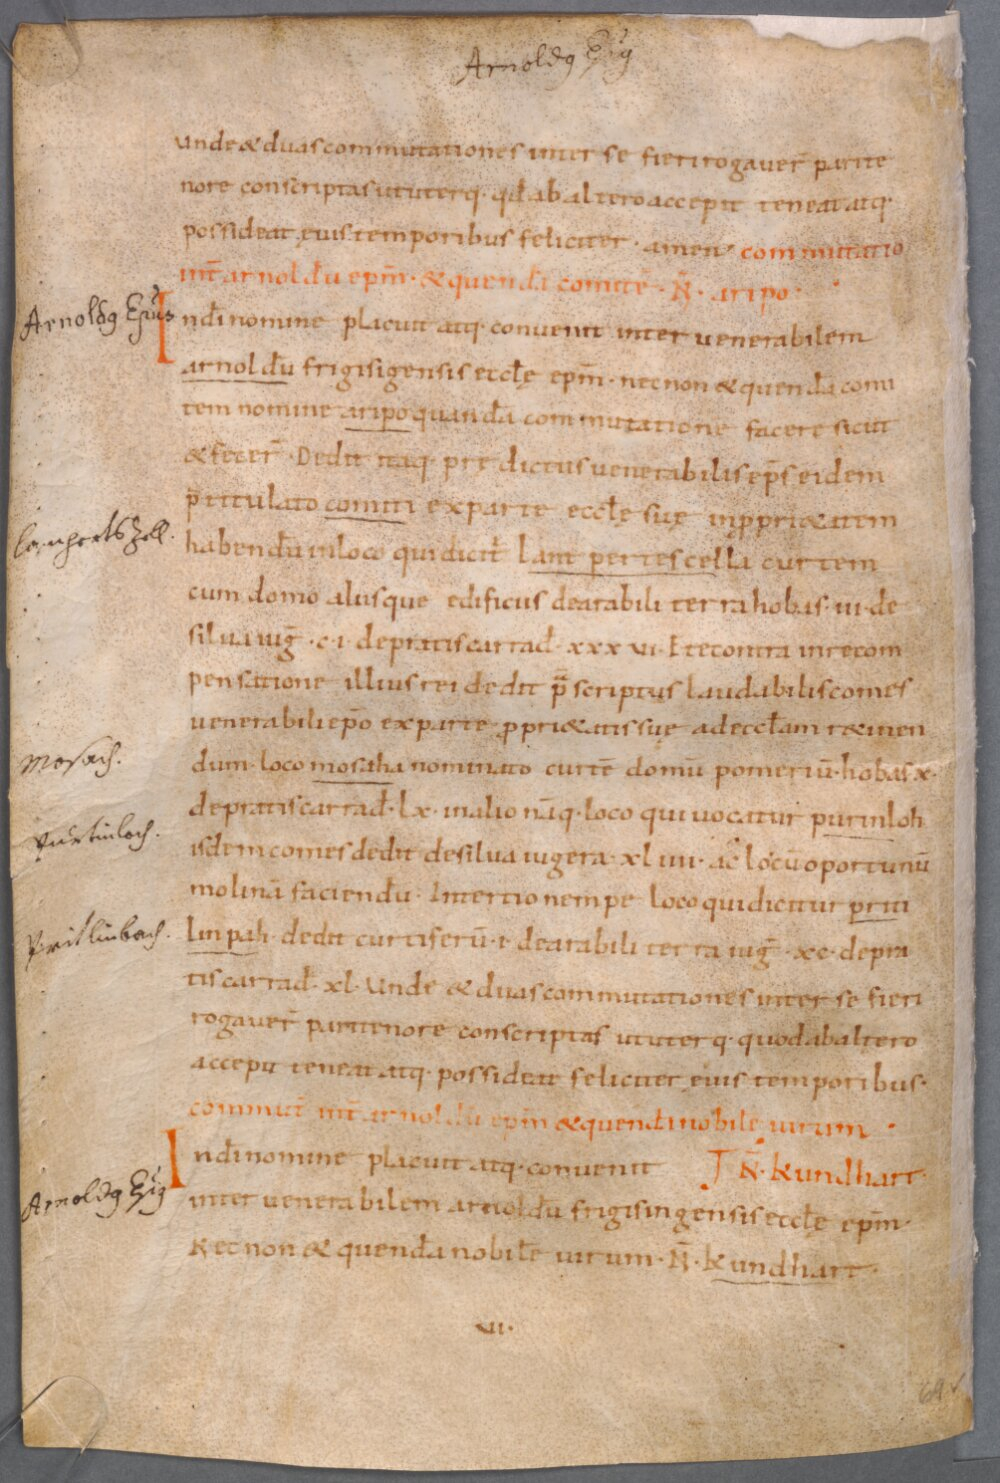 Arnoldg Epg
unde & duas commutationes inter se fieri rogauer̄ parite
nore conscriptas ut uterq· qđ ab altero accepit teneat atq·
possideat eius temporibus feliciter · amen · commutatio
int̄ arnoldū ep̄m · & quendā comitē · N̄ · aripo ·
Arnoldg Epus
In dī nomine placuit atq· conuenit inter uenerabilem
arnoldū frigisigensis eccłę ep̄m · nec non & quendā comi
tem nomine aripo quandā commutationē facere sicut
& fecer̄ · Dedit itaq· pre dictus uenerabilis ep̄s eidem
p̄titulato comiti ex parte eccłę suę in ppri&atem
lanpertszell.
habendū in loco qui dicit̄ lant pertescella curtem
cum domo aliisque edificiis de arabili terra hobas · iii · de
silua iuḡ · c · i · de pratis carrad̄ · xxx vi · E recontra in recom
pensatione illius rei dedit p̄scriptus laudabilis comes
uenerabili ep̄o ex parte ppri&atis suę ad eccłam r&inen
Mosach.
dum · loco mosaha nominato curtē domū pomeriū · hobas x ·
de pratis carrad̄ · lx · in alio nāq· loco qui uocatur purinloh
Purtinloch.
isdem comes dedit de silua iugera · xl iiii · ac locū oportunū
molinā faciendū · In tertio nempe loco qui dicitur priti
Pritlinbach.
linpah · dedit curtiferū · i · de arabili terra iuḡ · xc · de pra
tis carrad̄ · xl · Unde & duas commutationes inter se fieri
rogauer̄ pari tenore conscriptas ut uterq· quod ab altero
accepit teneat atq· possideat feliciter eius temporibus ·
commut̄ int̄ arnoldū ep̄m & quendā nobilē uirum ·
In dī nomine placuit atq· conuenit N̄ · kundhart
Arnoldg Epg
inter uenerabilem arnoldū frigisingensis eccłę ep̄m ·
Nec non & quendā nobilē uirum · N̄ · kundhart ·
vii ·
64 v